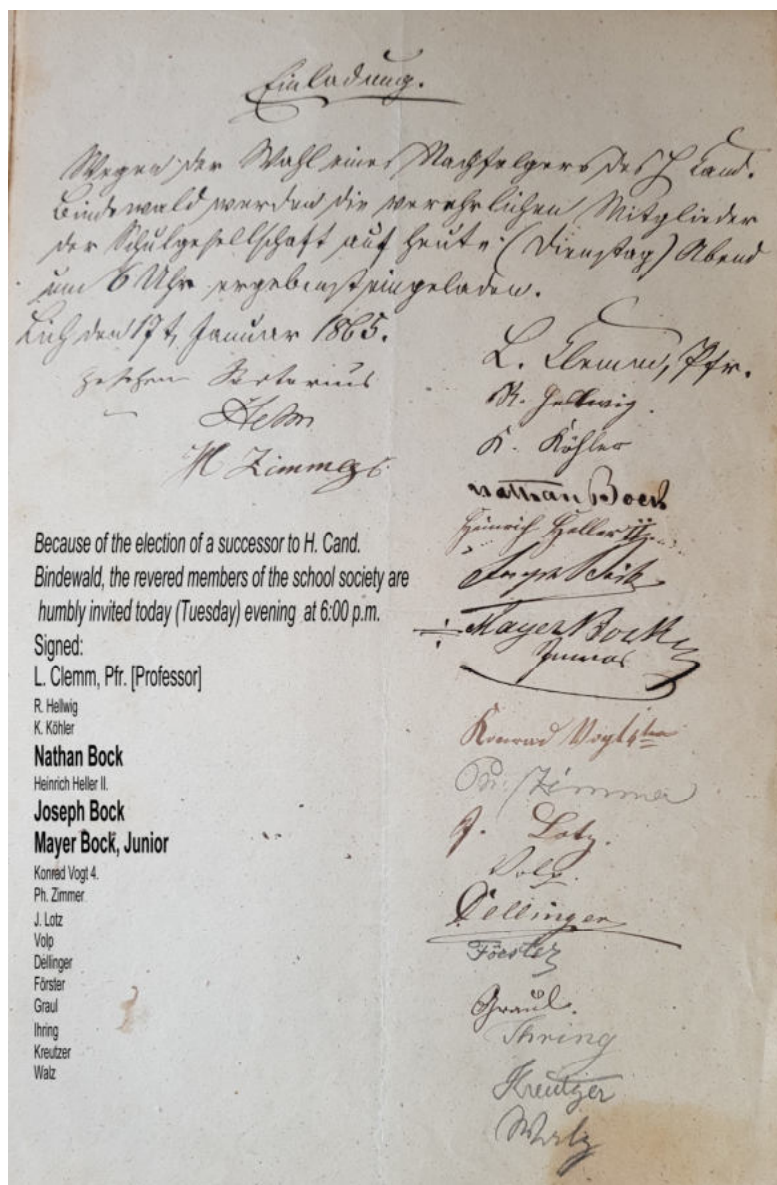 Einladung.
Wegen der Wahl eines Nachfolgers des H. Cand.
Bindewald werden die verehrlichen Mitglieder
der Schulgesellschaft auf heute (Dienstag) Abend
um 6 Uhr ergebenst eingeladen.
Lich den 17t. Januar 1865.
L. Clemm, Pfr.
gesehen Sartorius
R. Hellwig.
Helm
K. Köhler
H Zimmer
Nathan Bock
Heinrich Heller II
Joseph Bock
Mayer Bock
Junior
Konrad Vogt 4ter
Ph. Zimmer
J. Lotz.
Volp.
Dellinger
Förster
Graul.
Ihring
Kreutzer
Walz
Because of the election of a successor to H. Cand.
Bindewald, the revered members of the school society are
humbly invited today (Tuesday) evening at 6:00 p.m.
Signed:
L. Clemm, Pfr. [Professor]
R. Hellwig
K. Köhler
Nathan Bock
Heinrich Heller II.
Joseph Bock
Mayer Bock, Junior
Konrad Vogt 4.
Ph. Zimmer
J. Lotz
Volp
Dellinger
Förster
Graul
Ihring
Kreutzer
Walz